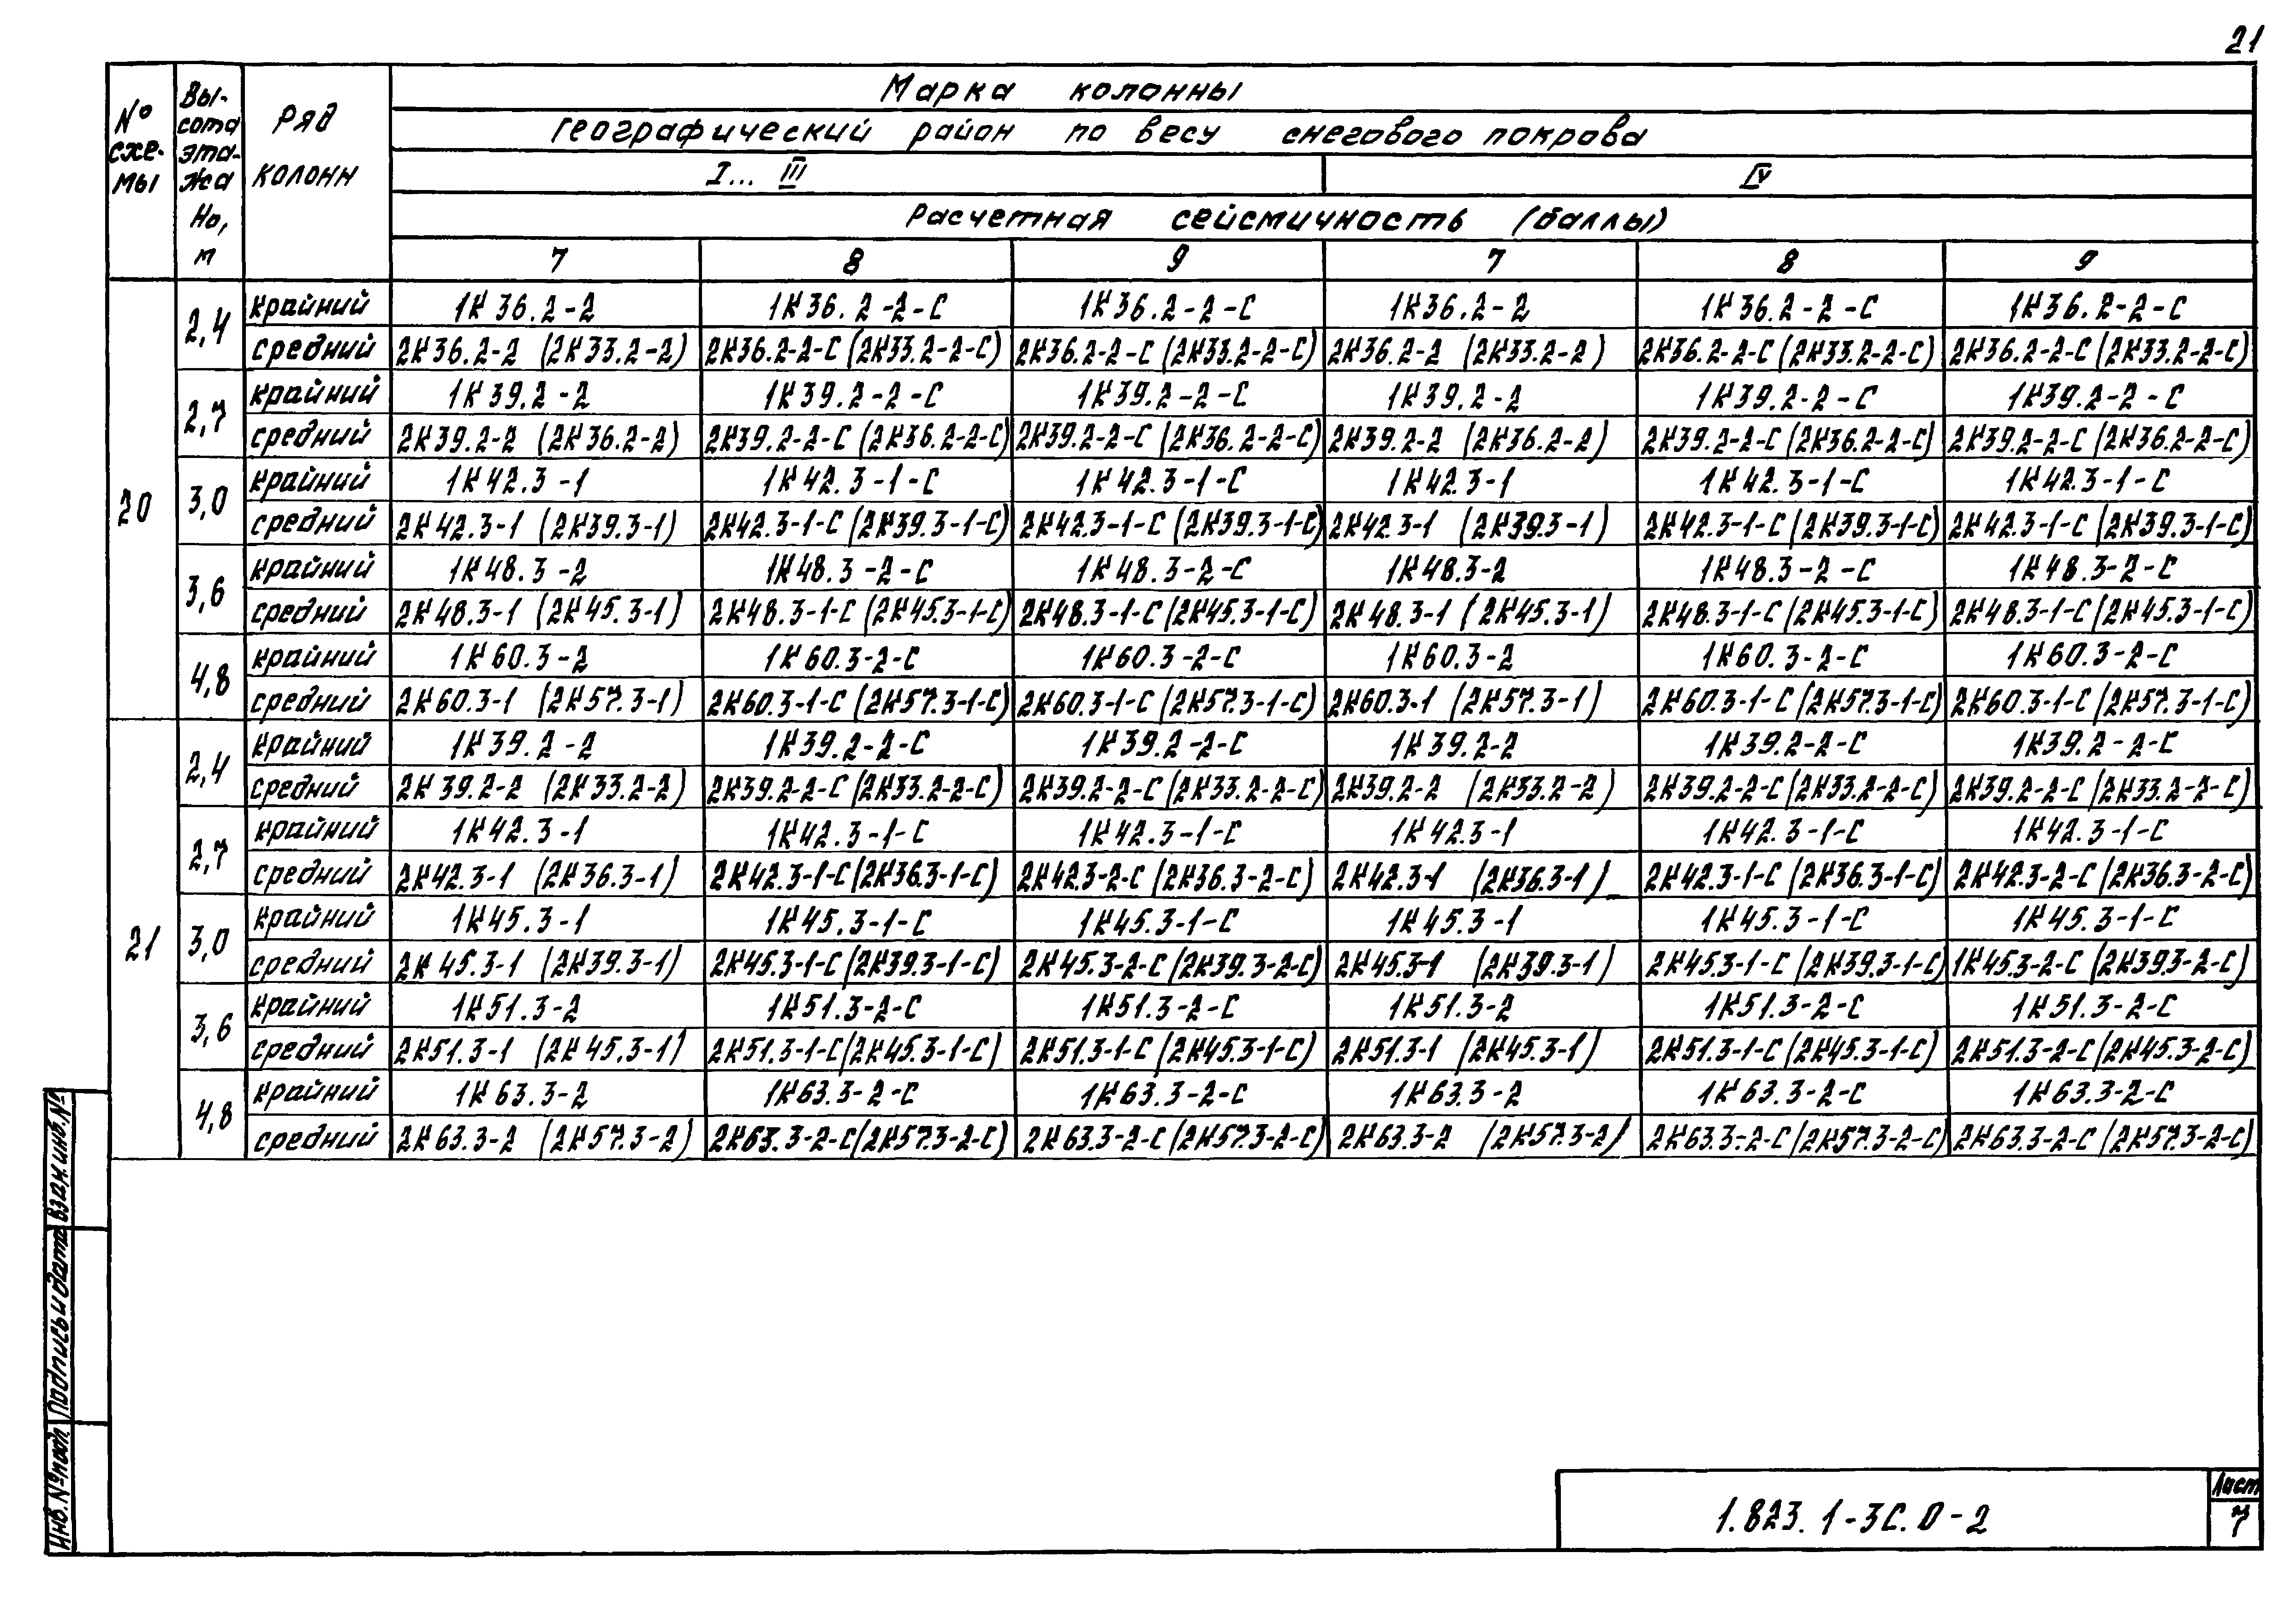 21
Марка колонны
№ схе- мы
Вы- сота эта- жа Но, м
Ряд колонн
Географический район по весу снегового покрова
I... III IV
Расчетная сейсмичность (баллы)
7 8 9 7 8 9
20 2,4 крайний 1К36.2-2 1К36.2-2-С 1К36.2-2-С 1К36.2-2 1К36.2-2-С 1К36.2-2-С
средний 2К36.2-2 (2К33.2-2) 2К36.2-2-С (2К33.2-2-С) 2К36.2-2-С (2К33.2-2-С) 2К36.2-2 (2К33.2-2) 2К36.2-2-С (2К33.2-2-С) 2К36.2-2-С (2К33.2-2-С)
2,7 крайний 1К39.2-2 1К39.2-2-С 1К39.2-2-С 1К39.2-2 1К39.2-2-С 1К39.2-2-С
средний 2К39.2-2 (2К36.2-2) 2К39.2-2-С (2К36.2-2-С) 2К39.2-2-С (2К36.2-2-С) 2К39.2-2 (2К36.2-2) 2К39.2-2-С (2К36.2-2-С) 2К39.2-2-С (2К36.2-2-С)
3,0 крайний 1К42.3-1 1К42.3-1-С 1К42.3-1-С 1К42.3-1 1К42.3-1-С 1К42.3-1-С
средний 2К42.3-1 (2К39.3-1) 2К42.3-1-С (2К39.3-1-С) 2К42.3-1-С (2К39.3-1-С) 2К42.3-1 (2К39.3-1) 2К42.3-1-С (2К39.3-1-С) 2К42.3-1-С (2К39.3-1-С)
3,6 крайний 1К48.3-2 1К48.3-2-С 1К48.3-2-С 1К48.3-2 1К48.3-2-С 1К48.3-2-С
средний 2К48.3-1 (2К45.3-1) 2К48.3-1-С (2К45.3-1-С) 2К48.3-1-С (2К45.3-1-С) 2К48.3-1 (2К45.3-1) 2К48.3-1-С (2К45.3-1-С) 2К48.3-1-С (2К45.3-1-С)
4,8 крайний 1К60.3-2 1К60.3-2-С 1К60.3-2-С 1К60.3-2 1К60.3-2-С 1К60.3-2-С
средний 2К60.3-1 (2К57.3-1) 2К60.3-1-С (2К57.3-1-С) 2К60.3-1-С (2К57.3-1-С) 2К60.3-1 (2К57.3-1) 2К60.3-1-С (2К57.3-1-С) 2К60.3-1-С (2К57.3-1-С)
21 2,4 крайний 1К39.2-2 1К39.2-2-С 1К39.2-2-С 1К39.2-2 1К39.2-2-С 1К39.2-2-С
средний 2К39.2-2 (2К33.2-2) 2К39.2-2-С (2К33.2-2-С) 2К39.2-2-С (2К33.2-2-С) 2К39.2-2 (2К33.2-2) 2К39.2-2-С (2К33.2-2-С) 2К39.2-2-С (2К33.2-2-С)
2,7 крайний 1К42.3-1 1К42.3-1-С 1К42.3-1-С 1К42.3-1 1К42.3-1-С 1К42.3-1-С
средний 2К42.3-1 (2К36.3-1) 2К42.3-1-С (2К36.3-1-С) 2К42.3-2-С (2К36.3-2-С) 2К42.3-1 (2К36.3-1) 2К42.3-1-С (2К36.3-1-С) 2К42.3-2-С (2К36.3-2-С)
3,0 крайний 1К45.3-1 1К45.3-1-С 1К45.3-1-С 1К45.3-1 1К45.3-1-С 1К45.3-1-С
средний 2К45.3-1 (2К39.3-1) 2К45.3-1-С (2К39.3-1-С) 2К45.3-2-С (2К39.3-2-С) 2К45.3-1 (2К39.3-1) 2К45.3-1-С (2К39.3-1-С) 1К45.3-2-С (2К39.3-2-С)
3,6 крайний 1К51.3-2 1К51.3-2-С 1К51.3-2-С 1К51.3-2 1К51.3-2-С 1К51.3-2-С
средний 2К51.3-1 (2К45.3-1) 2К51.3-1-С (2К45.3-1-С) 2К51.3-1-С (2К45.3-1-С) 2К51.3-1 (2К45.3-1) 2К51.3-1-С (2К45.3-1-С) 2К51.3-2-С (2К45.3-2-С)
4,8 крайний 1К63.3-2 1К63.3-2-С 1К63.3-2-С 1К63.3-2 1К63.3-2-С 1К63.3-2-С
средний 2К63.3-2 (2К57.3-2) 2К63.3-2-С (2К57.3-2-С) 2К63.3-2-С (2К57.3-2-С) 2К63.3-2 (2К57.3-2) 2К63.3-2-С (2К57.3-2-С) 2К63.3-2-С (2К57.3-2-С)
Взам.инв.№
Подпись и дата
Инв.№подл.
1.823.1-3С.0-2
Лист
7